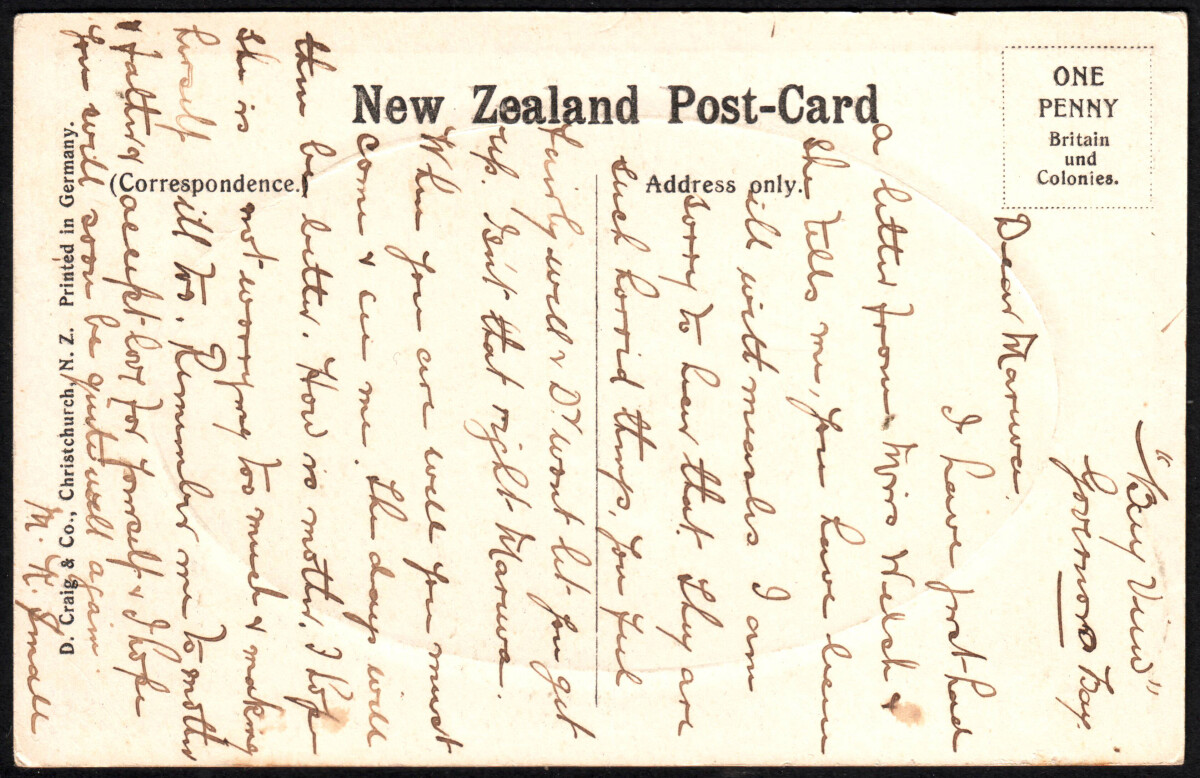 New Zealand Post-Card
(Correspondence.)
Address only.
ONE
PENNY
Britain
und
Colonies.
D. Craig & Co., Christchurch, N. Z. Printed in Germany.
"Bay View"
Governors Bay.
Dear Marewa.
I have just had
a letter from Mrs Welch &
she tells me, you have been
ill with measles I am
sorry to hear that. They are
such horrid things, you feel
fairly well & Dr wont let you get
up. Isn't that right Marewa.
When you are well you must
come & see me. The days will
then be better. How is mother, I hope
she is not worrying too much & making
herself ill too. Remember me to mother
& father & accept love for yourself & I hope
you will soon be quite well again
M. K. Small